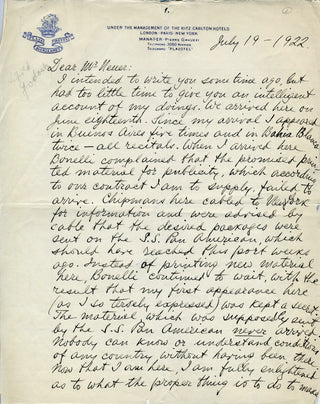 UNDER THE MANAGEMENT OF THE RITZ CARLTON HOTELS
LONDON - PARIS - NEW YORK
MANAGER - PIERRE
TELEPHONE 3080 AVENIDA
TELEGRAMS "PLAZOTEL"
July 19 - 1922
Dear Mr
I intended to write you some time ago, but
had too little time to give you an intelligent
account of my doings. We arrived here on
June eighteenth. Since my arrival I appeared
in Buenos Aires five times and in Bahia Blanca
twice - all recitals. When I arrived here
Bonelli complained that the promised prin-
ted material for publicity, which according
to our contract I am to supply, failed to
arrive. Chipmans here cabled to New York
for information and were advised by
cable that the desired packages were
sent on the S.S. Pan American, which
should have reached this port weeks
ago. Instead of printing new material
here, Bonelli continued to wait with the
result that my first appearance here
(as I so tersely expressed) was kept a secret.
The material, which was supposedly sent
by the S.S. Pan American never arrived.
Nobody can know or understand conditions
of any country without having been there.
Now that I am here, I am fully enlightened
as to what the proper thing is to do to make